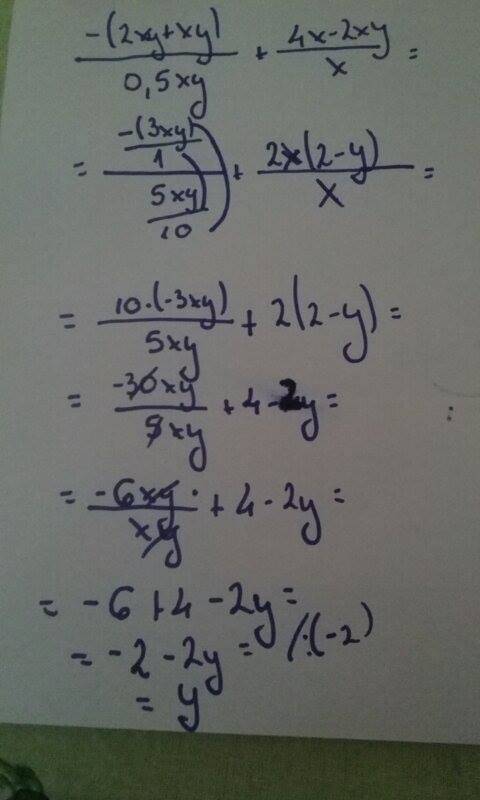 -(2xy+xy)/0,5xy + 4x-2xy/x =
= -(3xy)/1/5xy/10 + 2x(2-y)/x =
= 10·(-3xy)/5xy + 2(2-y) =
= -30xy/5xy + 4-2y =
= -6xy/xy + 4-2y =
= -6+4-2y =
= -2-2y = /:(-2)
= y